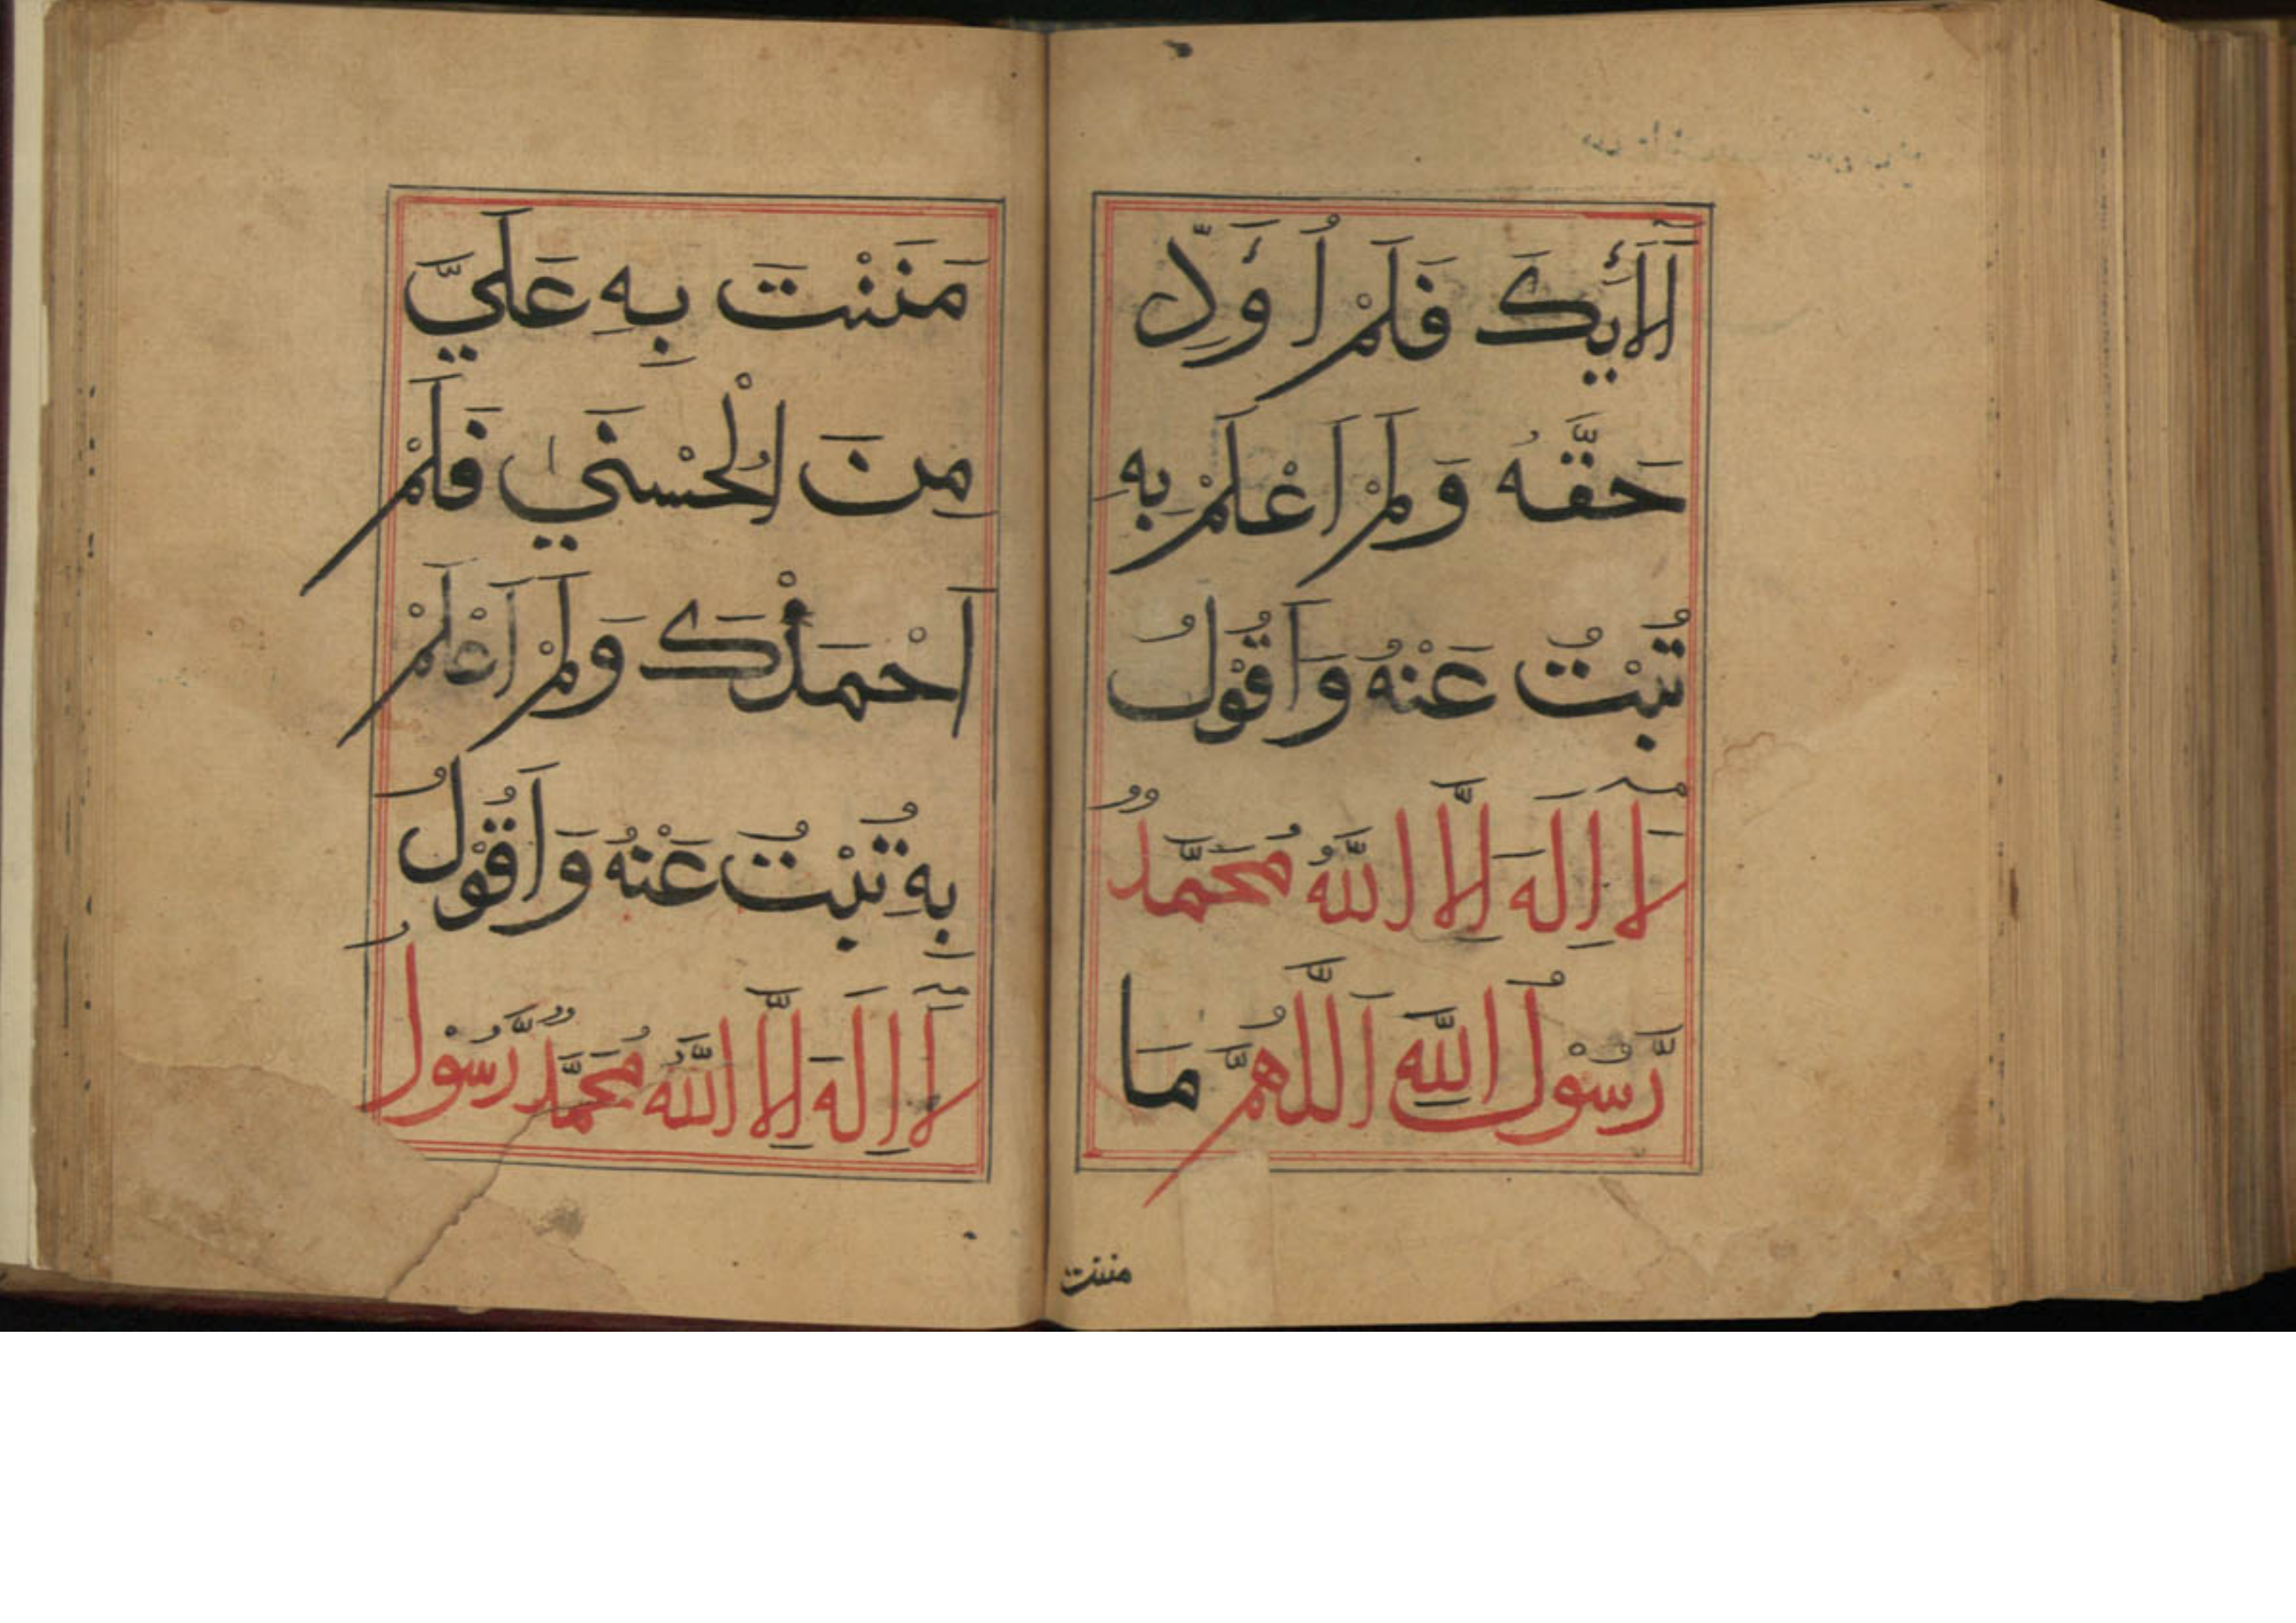 لَاٰلَائِكَ فَلَمْ اُوَدِّ
حَقَّهُ وَلَمْ اَعْلَمْ بِهِ
تُبْتُ عَنْهُ وَاَقُوْلُ
لَا اِلٰهَ اِلَّا اللّٰهُ مُحَمَّدٌ
رَّسُوْلُ اللّٰهِ اَللّٰهُمَّ مَا
مننت
مَنَنْتَ بِهِ عَلَيَّ
مِنَ الْحُسْنٰي فَلَمْ
اَحْمَدْكَ وَلَمْ اَعْلَمْ
بِهِ تُبْتُ عَنْهُ وَاَقُوْلُ
لَا اِلٰهَ اِلَّا اللّٰهُ مُحَمَّدٌ رَّسُوْلُ